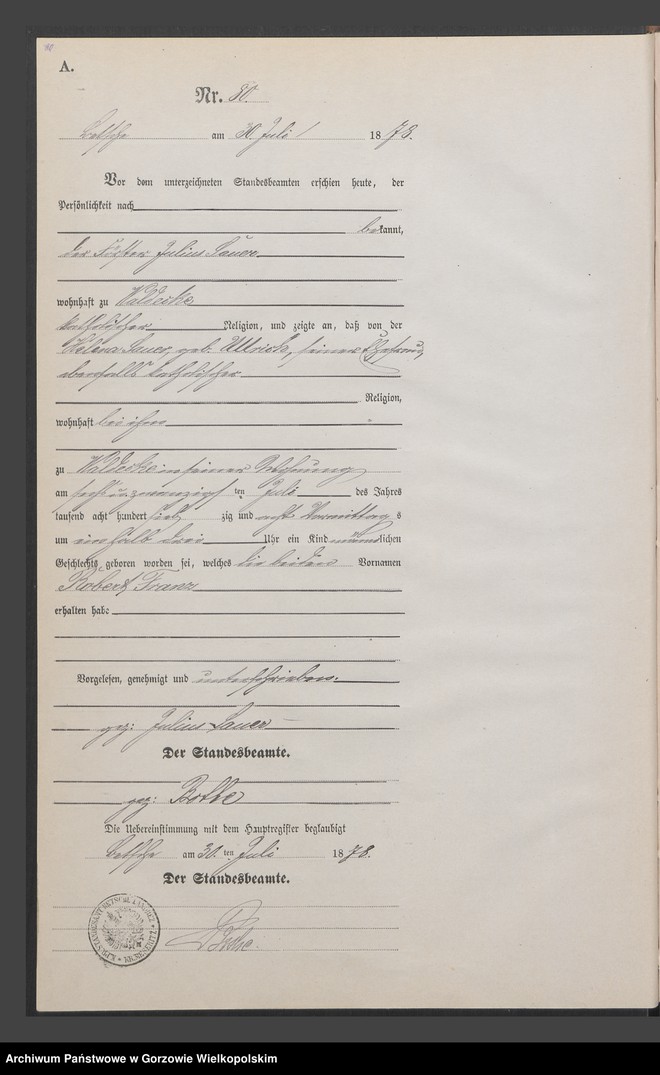 A.
Nr. 80.
Betsche am 30. Juli 1878.
Vor dem unterzeichneten Standesbeamten erschien heute, der
Persönlichkeit nach
bekannt,
der Förster Julius Sauer
wohnhaft zu
katholischer Religion, und zeigte an, daß von der
Helena Sauer, geb. Ullrich, seiner Ehefrau,
ebenfalls katholischer
Religion,
wohnhaft bei ihm
zu in seiner Wohnung
am sechs u. zwanzigsten ten Juli des Jahres
tausend acht hundert sieb zig und acht Vormittag s
um ein halb drei Uhr ein Kind männlichen
Geschlechts geboren worden sei, welches die beiden Vornamen
Robert Franz
erhalten habe
Vorgelesen, genehmigt und unterschrieben.
gez: Julius Sauer
Der Standesbeamte.
gez: Bothe
Die Uebereinstimmung mit dem Hauptregister beglaubigt
Betsche am 30. ten Juli 1878.
Der Standesbeamte.
Bothe.
Archiwum Państwowe w Gorzowie Wielkopolskim